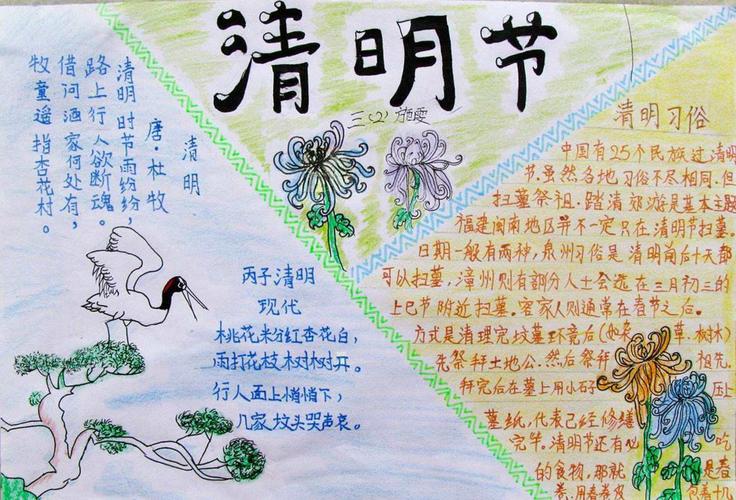 清明节
三(2) 施雯
清明
唐·杜牧
清明时节雨纷纷,
路上行人欲断魂。
借问酒家何处有,
牧童遥指杏花村。
丙子清明
现代
桃花粉红杏花白,
雨打花枝树树开。
行人面上悄悄下,
几家坟头哭声哀。
清明习俗
中国有25个民族过清明
节.虽然各地习俗不尽相同.但
扫墓祭祖.踏清郊游是基本主题
福建闽南地区并不一定只在清明节扫墓.
日期一般有两种,泉州习俗是清明前后十天都
可以扫墓,漳州则有部分人士会选在三月初三的
上巳节附近扫墓。客家人则通常在春节之后。
方式是清理完坟墓环境后(如 草.树木)
先祭拜土地公.然后祭拜 祖先.
拜完后在墓上用小石子 压上
墓纸,代表已经修缮
完毕。清明节还有必 吃
的食物,那就 是春
卷.用春卷皮 包着